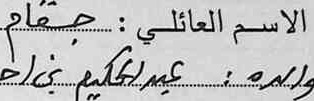 الاسم العائلي : جقام
والده : عبد الحكيم بن